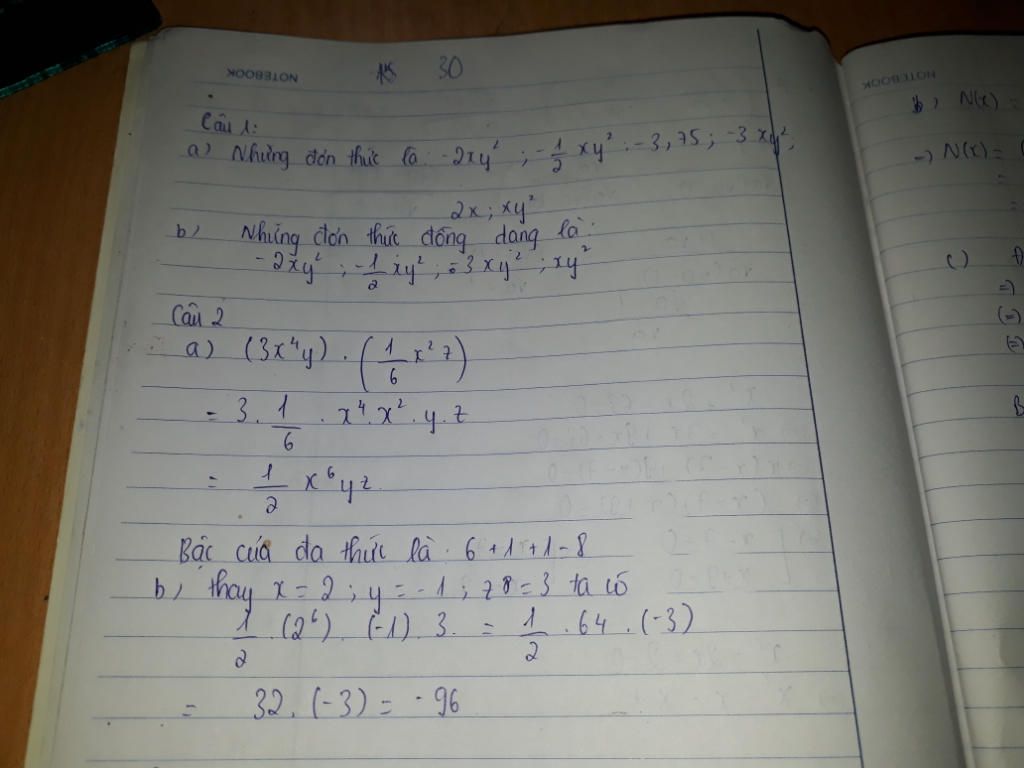 NOTEBOOK 30
Câu 1:
a) Những đơn thức là: -2xy²; -1/2 xy²; -3,75; -3xy²;
2x; xy²
b) Những đơn thức đồng dạng là:
-2xy²; -1/2 xy²; -3xy²; xy²
Câu 2
a) (3x⁴y) . (1/6 x² z)
= 3 . 1/6 . x⁴ . x² . y . z
= 1/2 x⁶yz
Bậc của đa thức là: 6+1+1=8
b) thay x = 2; y = -1; z = 3 ta có
1/2 . (2⁶) . (-1) . 3 = 1/2 . 64 . (-3)
= 32 . (-3) = -96
NOTEBOOK
b) N(x) =
=> N(x) =
=
=
c)
=>
(=)
(=)